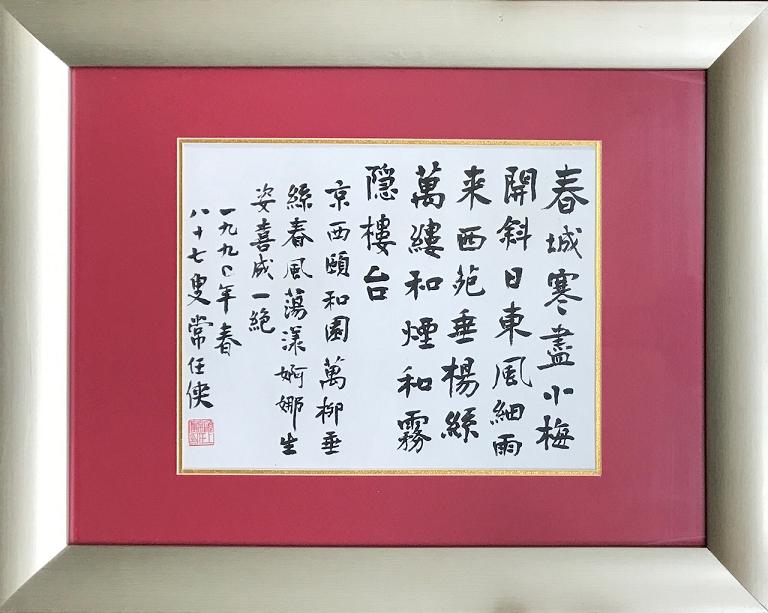 春城寒盡小梅
開斜日東風細雨
来西苑垂楊絲
萬縷和煙和霧
隱樓台
京西頤和園萬柳垂
絲春風蕩漾婀娜生
姿喜成一絕
一九九〇年春
八十七叟常任俠